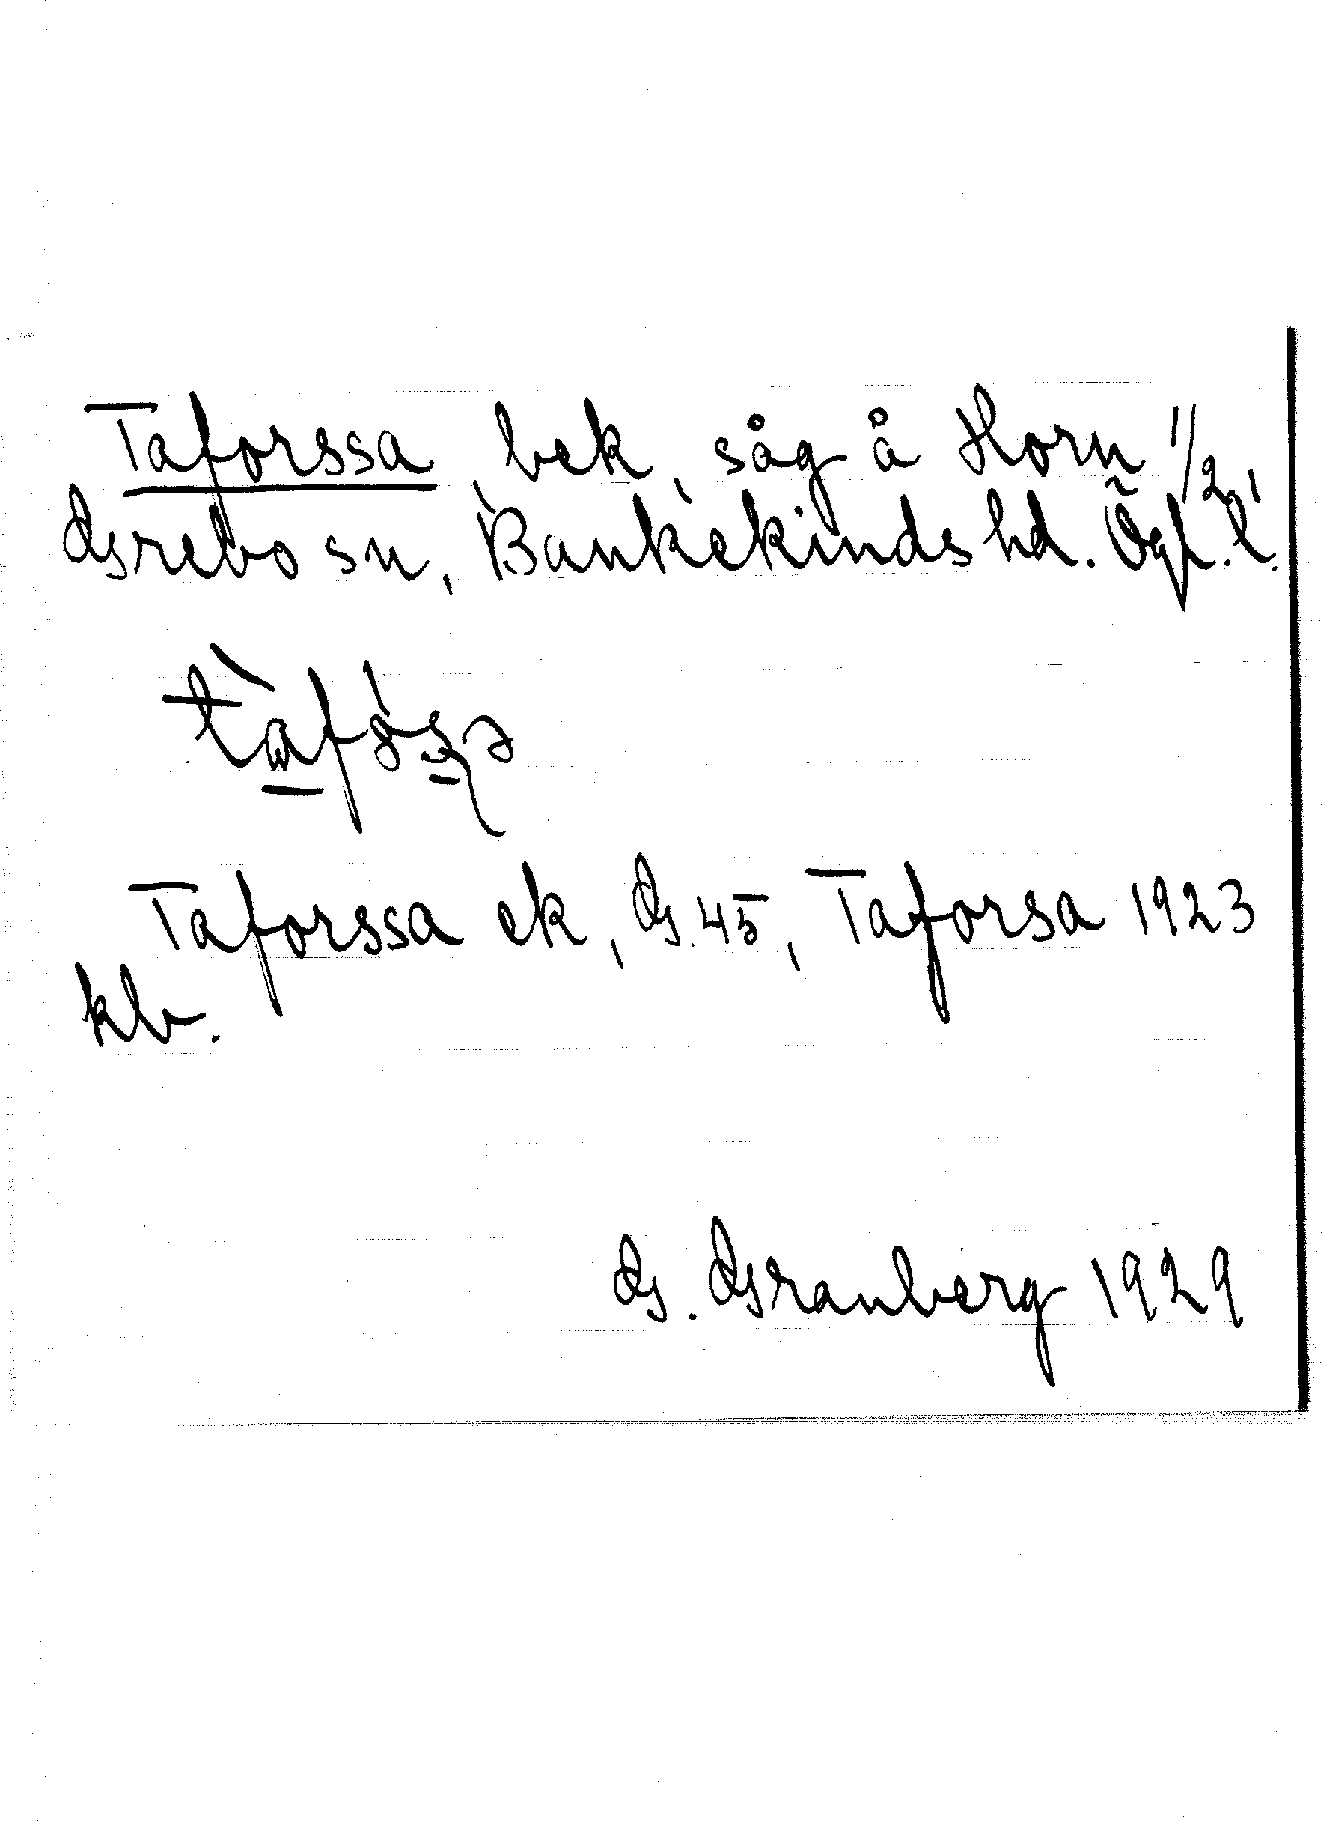 Taforssa, bek, såg å Horn 1/2,
Grebo sn, Bankekinds hd. Ögl. l.
tàfósa
Taforssa ek, G. 45, Taforsa 1923
kb.
G. Granberg 1929